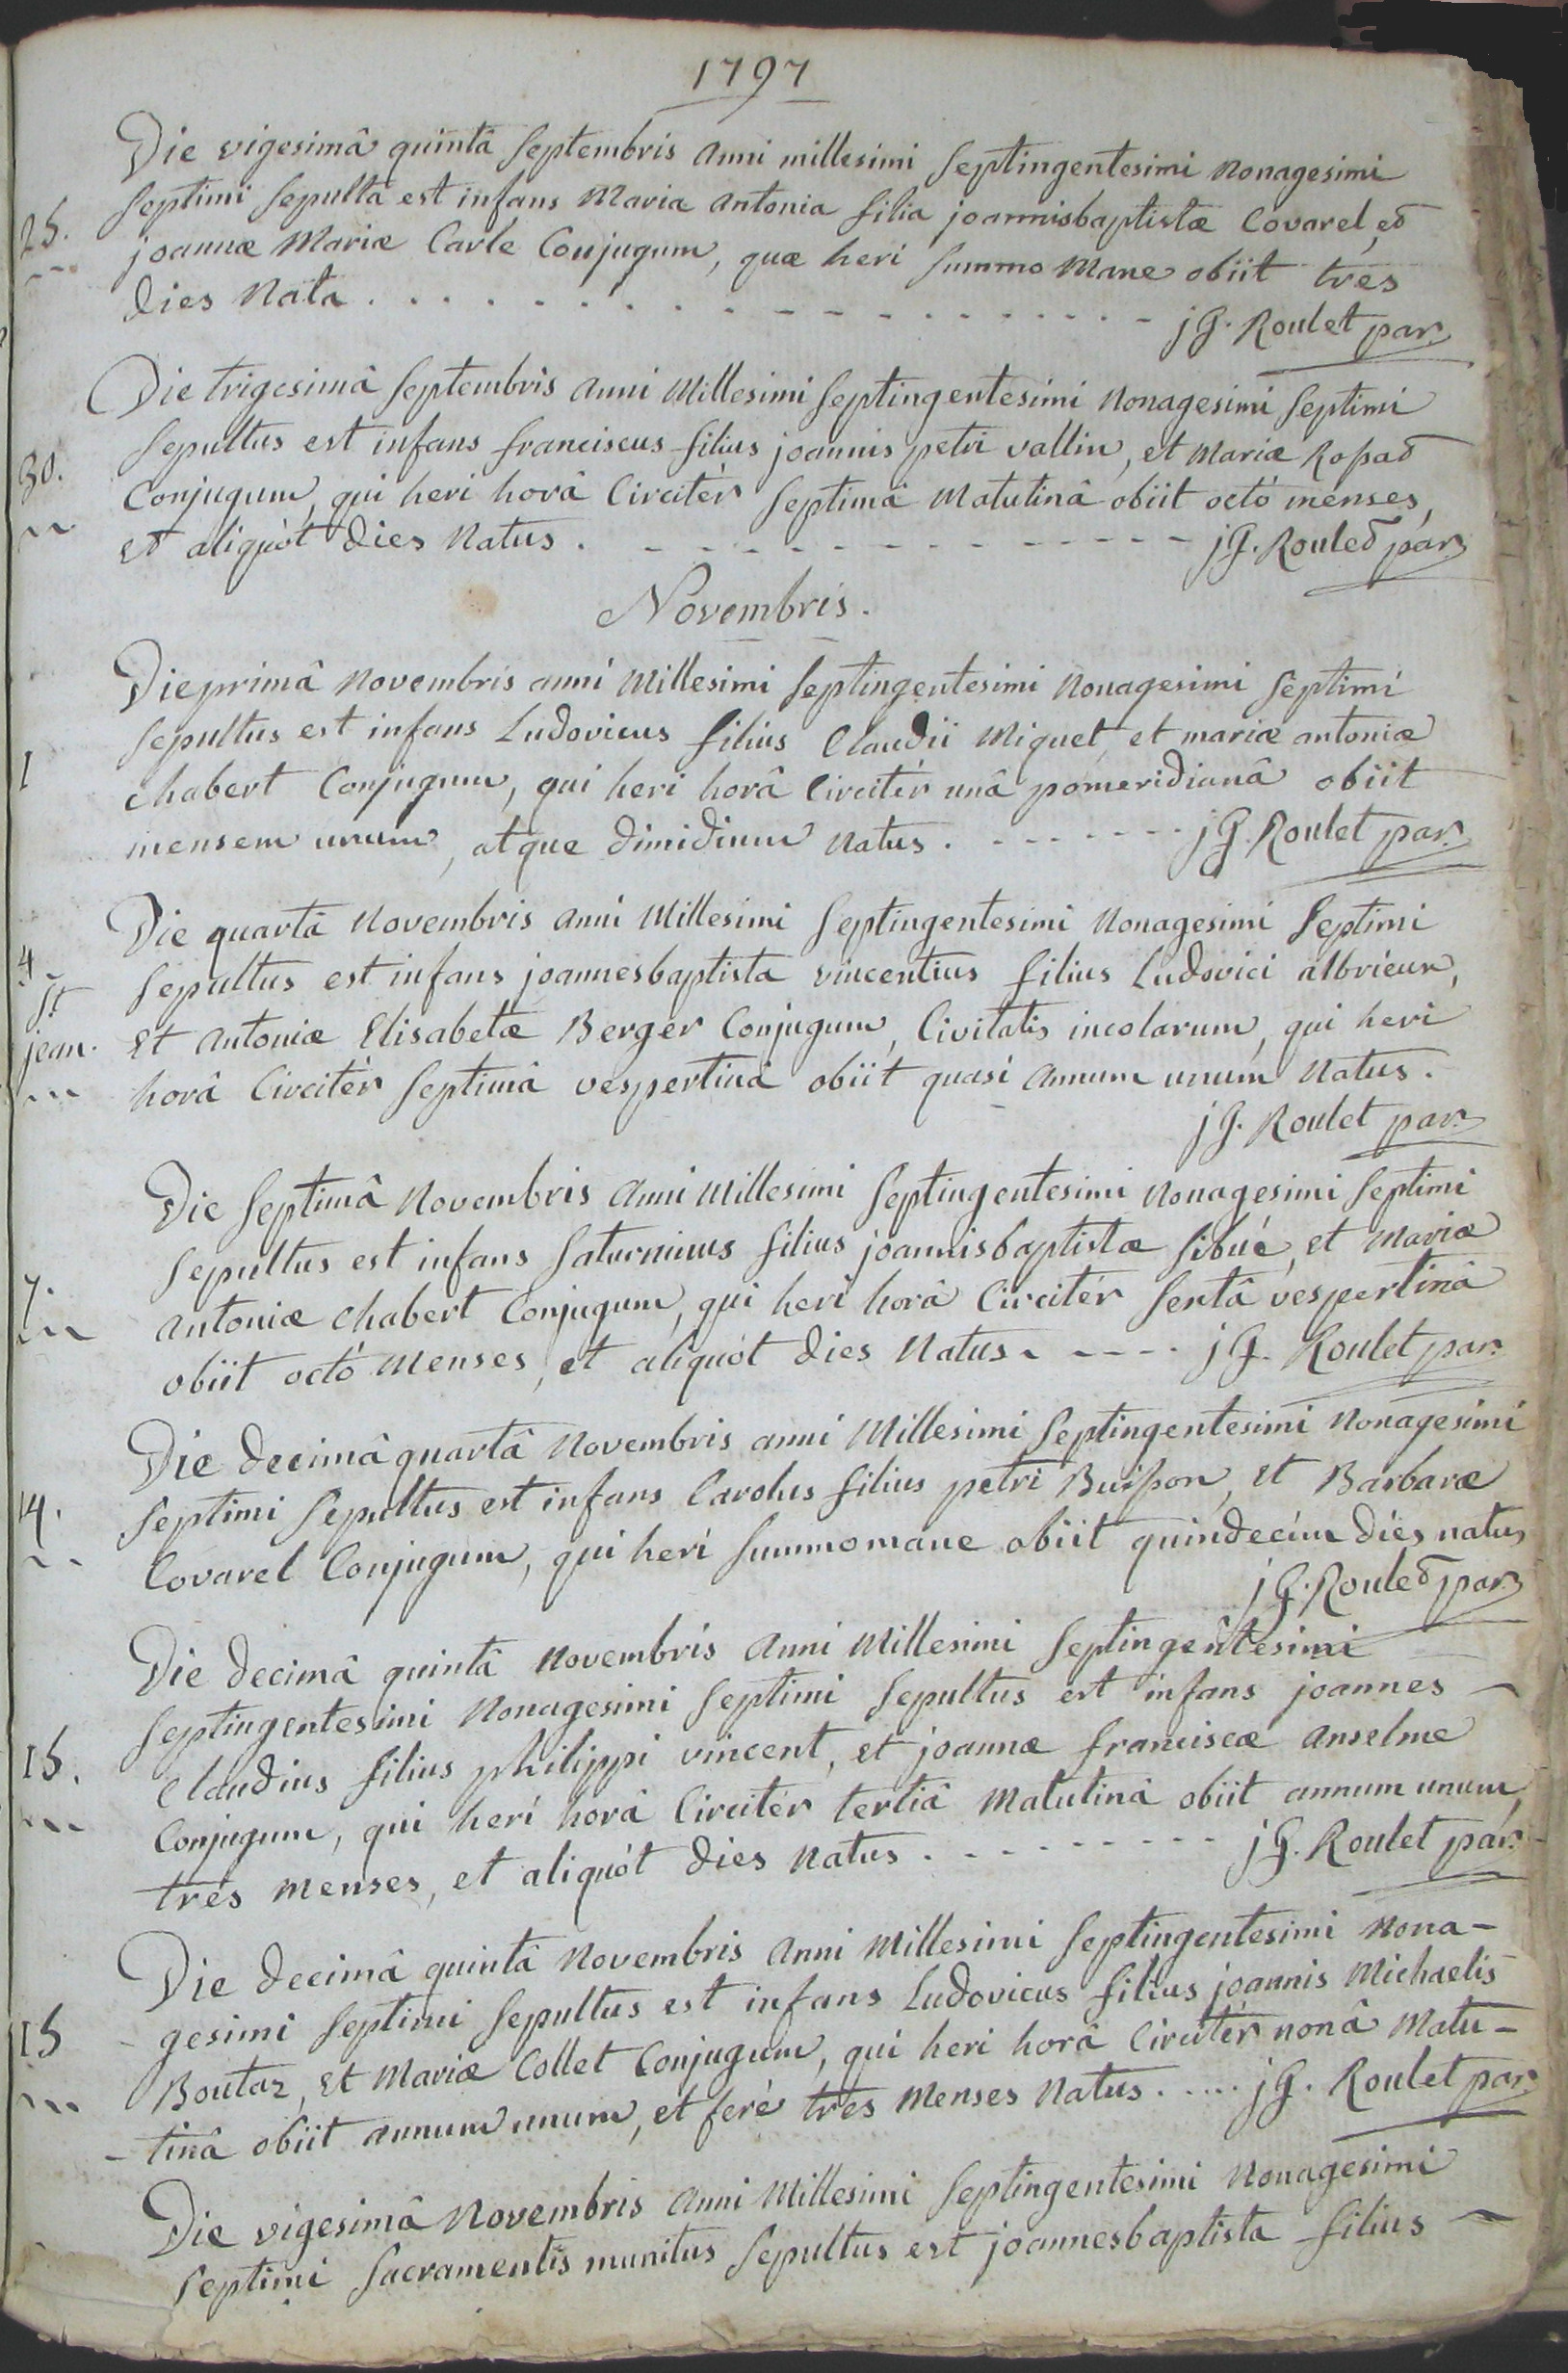 1797
Die vigesimâ quintâ Septembris anni millesimi Septingentesimi nonagesimi
25. Septimi Sepulta est infans Maria antonia filia joannisbaptistæ Covarel, et
joannæ Mariæ Carle Conjugum, quæ heri Summo Mane obiit tres
dies Nata. jG. Roulet par.
Die trigesimâ Septembris anni Millesimi Septingentesimi Nonagesimi Septimi
30. Sepultus est infans franciscus filius joannis petri vallin, et Mariæ Rossat
Conjugum, qui heri horâ Circitèr Septimâ Matutinâ obiit octò menses,
et aliquòt dies Natus. jG. Roulet par.
Novembris.
Die primâ Novembris anni Millesimi Septingentesimi Nonagesimi Septimi
Sepultus est infans Ludovicus filius Claudii Miquet, et mariæ antoniæ
1 Chabert Conjugum, qui heri horâ Circitèr unâ pomeridianâ obiit
mensem unum, atque dimidium Natus. jG. Roulet par.
Die quartâ Novembris anni Millesimi Septingentesimi Nonagesimi Septimi
4 Sepultus est infans joannesbaptista vincentius filius Ludovici albrieux,
St jean. Et Antoniæ Elisabetæ Berger Conjugum, Civitatis incolarum, qui heri
horâ Circitèr Septimâ vespertinâ obiit quasi annum unum Natus.
jG. Roulet par.
Die Septimâ Novembris anni Millesimi Septingentesimi Nonagesimi Septimi
Sepultus est infans Saturninus filius joannisbaptistæ Sibué, et Mariæ
7. antoniæ Chabert Conjugum, qui heri horâ Circitèr Sextâ vespertinâ
obiit octò Menses, et aliquòt dies Natus. jG. Roulet par.
Die decimâ quartâ Novembris anni Millesimi Septingentesimi Nonagesimi
14. Septimi Sepultus est infans Carolus filius petri Buisson, et Barbaræ
Covarel Conjugum, qui heri Summo mane obiit quindecim dies natus
jG. Roulet par.
Die decimâ quintâ Novembris Anni Millesimi Septingentesimi
Septingentesimi Nonagesimi Septimi Sepultus est infans joannes
15. Claudius filius philippi vincent, et joannæ franciscæ anselme
Conjugum, qui heri horâ Circitèr tertiâ Matutinâ obiit annum unum,
tres menses, et aliquòt dies Natus. jG. Roulet par.
Die decimâ quintâ Novembris anni Millesimi Septingentesimi Nona-
15 -gesimi Septimi Sepultus est infans Ludovicus filius joannis Michaelis
Boutaz, Et Mariæ Collet Conjugum, qui heri horâ Circitèr nonâ Matu-
-tinâ obiit annum unum, et ferè tres Menses Natus. jG. Roulet par.
Die vigesimâ Novembris Anni Millesimi Septingentesimi Nonagesimi
Septimi Sacramentis munitus Sepultus est joannesbaptista filius